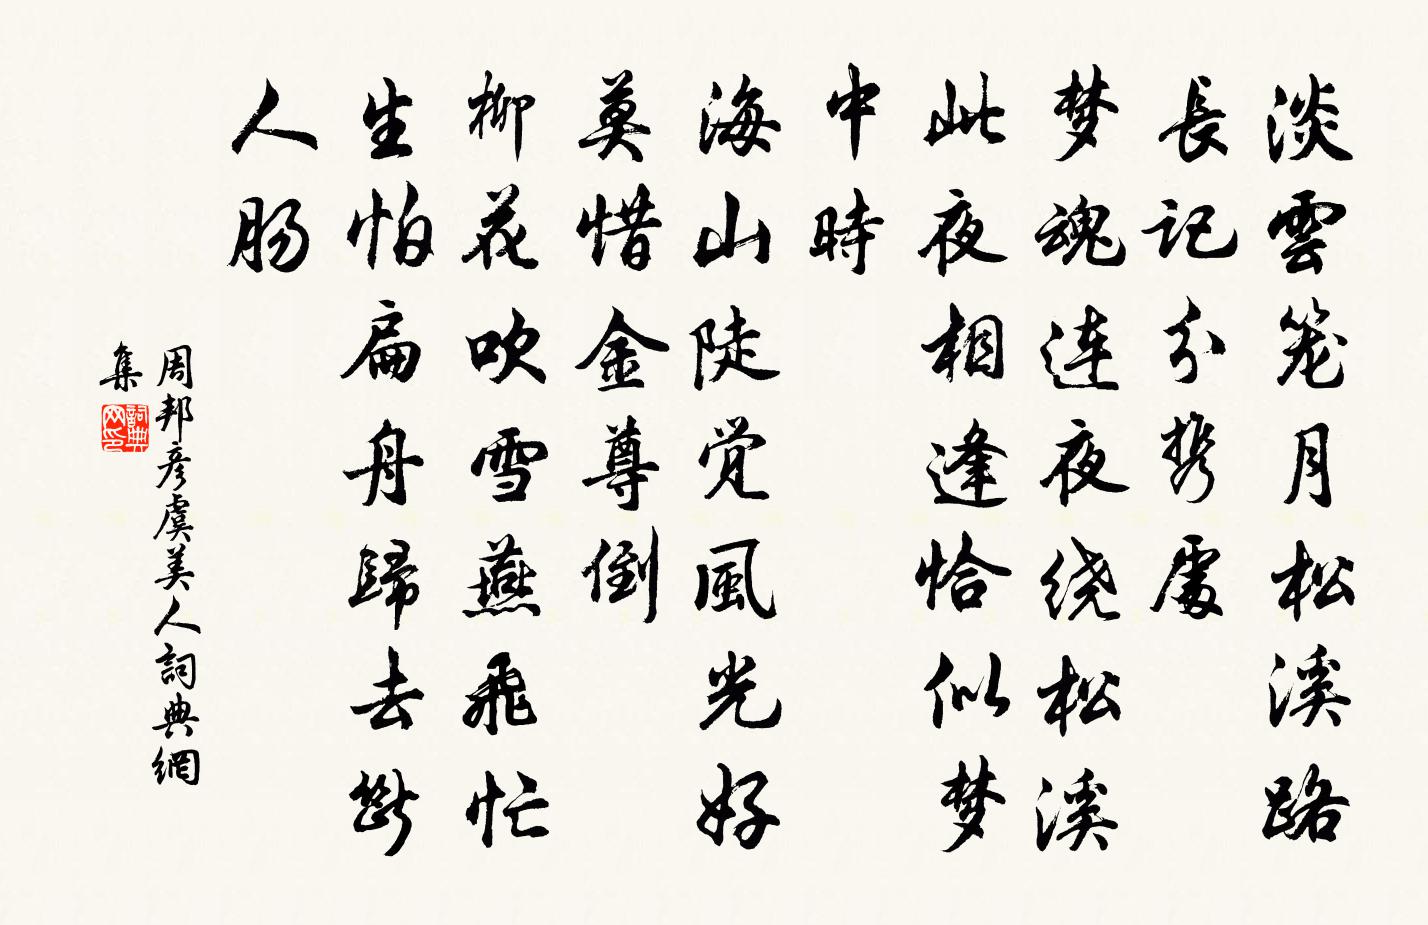 淡雲笼月松溪路
長記分携處
梦魂连夜绕松溪
此夜相逢恰似梦
中時
海山陡觉風光好
莫惜金尊倒
柳花吹雪燕飛忙
生怕扁舟歸去斷
人肠
周邦彦虞美人詞典網
集
詞典
网印